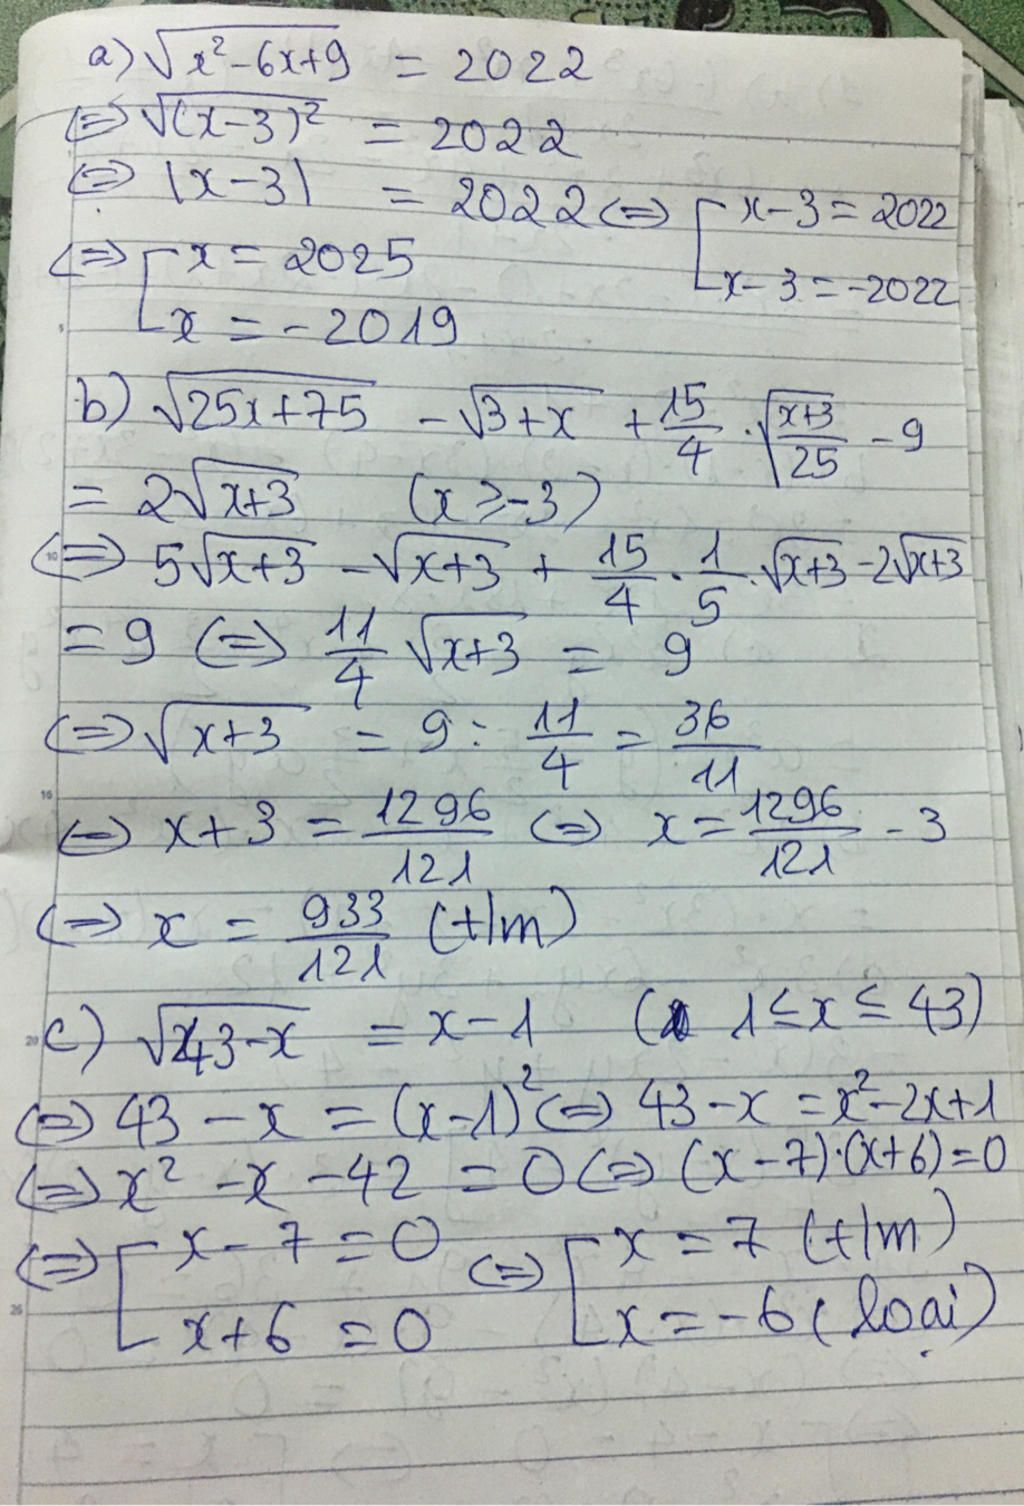 a) √(x²-6x+9) = 2022
⇔ √((x-3)²) = 2022
⇔ |x-3| = 2022 ⇔ [ x-3 = 2022
x-3 = -2022
⇔ [ x = 2025
x = -2019
b) √(25x+75) - √(3+x) + 15/4 . √((x+3)/25) - 9
= 2√(x+3) (x ≥ -3)
⇔ 5√(x+3) - √(x+3) + 15/4 . 1/5 . √(x+3) - 2√(x+3)
= 9 ⇔ 11/4 √(x+3) = 9
⇔ √(x+3) = 9 : 11/4 = 36/11
⇔ x+3 = 1296/121 ⇔ x = 1296/121 - 3
⇔ x = 933/121 (t/m)
c) √(43-x) = x-1 (1 ≤ x ≤ 43)
⇔ 43-x = (x-1)² ⇔ 43-x = x²-2x+1
⇔ x² -x -42 = 0 ⇔ (x-7).(x+6)=0
⇔ [ x-7 = 0 ⇔ [ x = 7 (t/m)
x+6 = 0 x = -6 (loại)